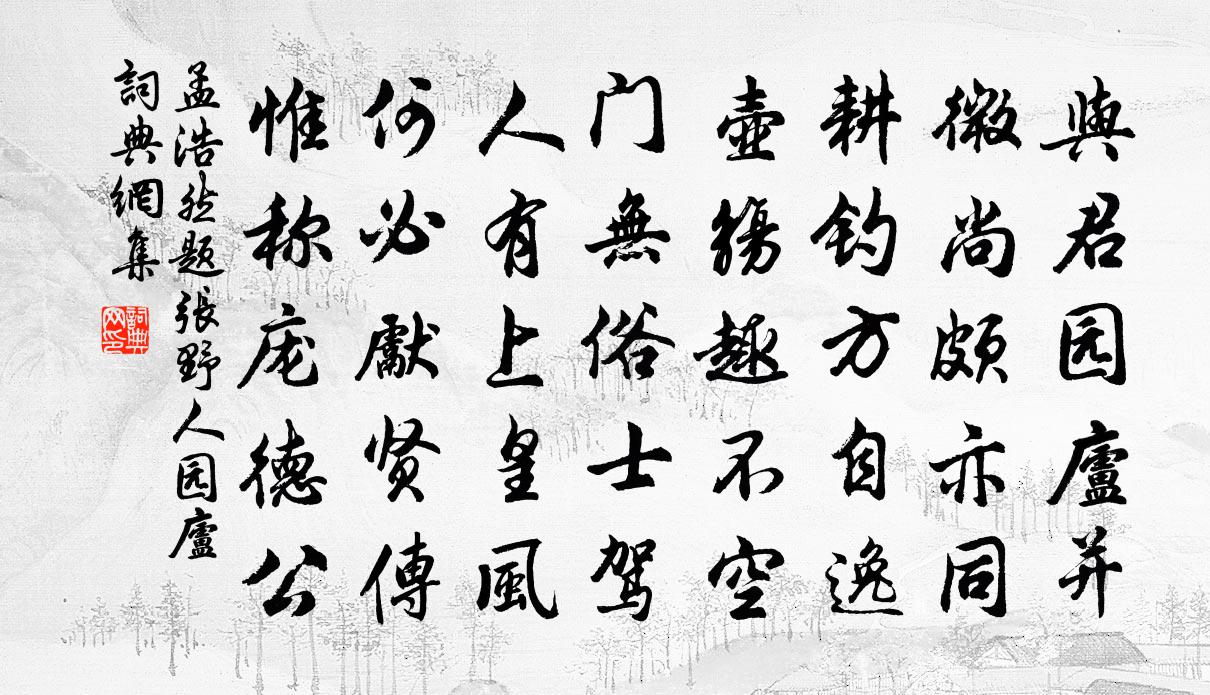 與君园廬并
微尚頗亦同
耕钓方自逸
壺觴趣不空
门無俗士驾
人有上皇風
何必獻贤傳
惟称庞德公
孟浩然题張野人园廬
詞典網集
詞典网印